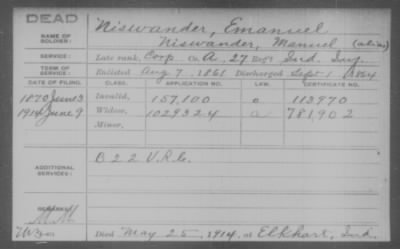 DEAD
NAME OF SOLDIER: Niswander, Emanuel
Niswander, Manuel (alias)
SERVICE: Late rank, Corp. Co. A, 27 Reg't Ind. Inf.
TERM OF SERVICE: Enlisted Aug 7, 1861 Discharged Sept 1, 1864
DATE OF FILING. CLASS. APPLICATION NO. LAW. CERTIFICATE NO.
1870 June 3 Invalid, 157,100 a 113970
1914 June 9 Widow, 1029324 a 781902
Minor,
ADDITIONAL SERVICES: B 22 V.R.C.
REMARKS:
Died May 25, 1914, at Elkhart, Ind.